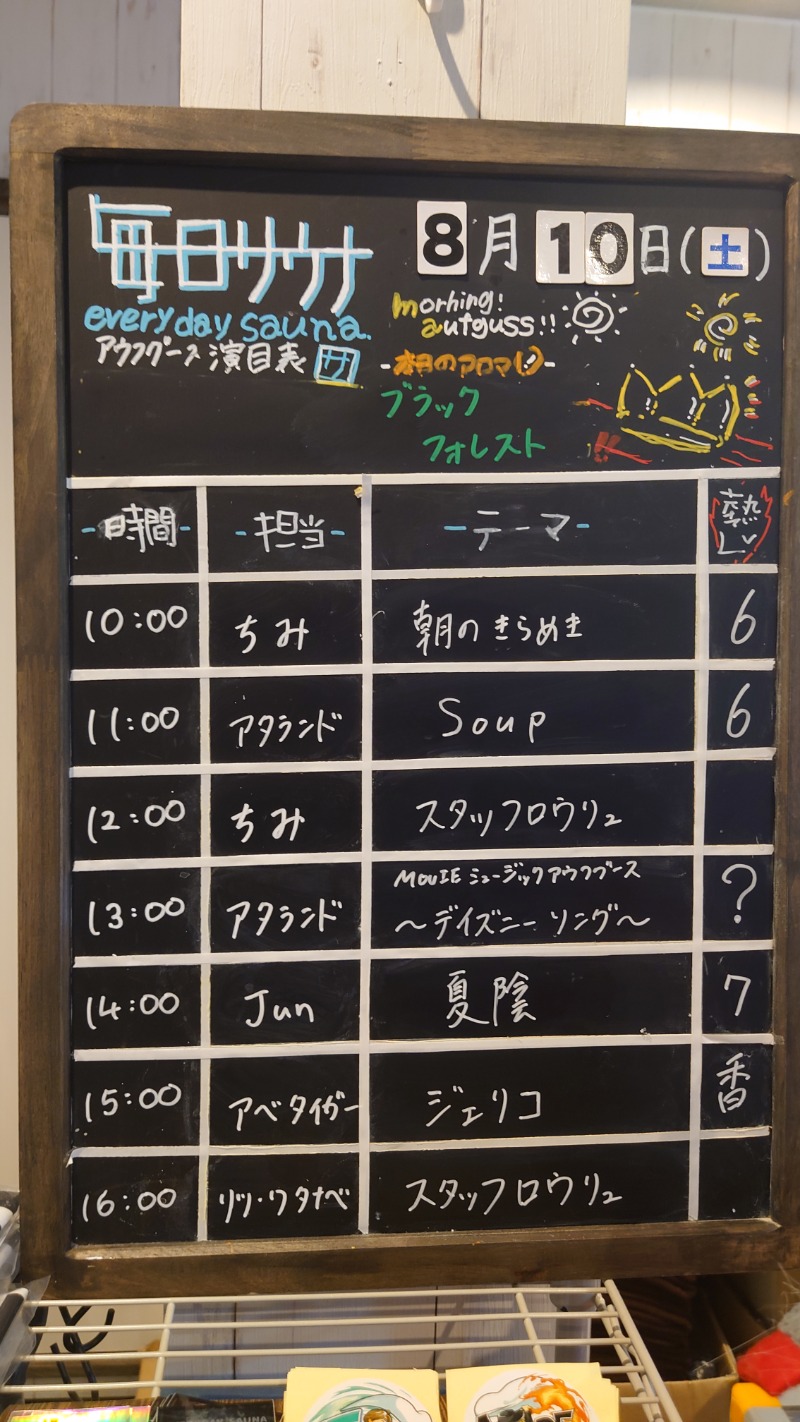 毎日サウナ
every day sauna.
アウフグース演目表 サ
8月10日(土)
morning!
aufguss!!
-本日のアロマ-
ブラック
フォレスト
-時間- -担当- -テーマ- 熱レベ
10:00 ちみ 朝のきらめき 6
11:00 アタランド Soup 6
12:00 ちみ スタッフロウリュ
13:00 アタランド MOVIE ミュージックアウフグース ?
〜デイズニー ソング〜
14:00 Jun 夏陰 7
15:00 アベタイガー ジェリコ 香
16:00 リツ・ワタナベ スタッフロウリュ